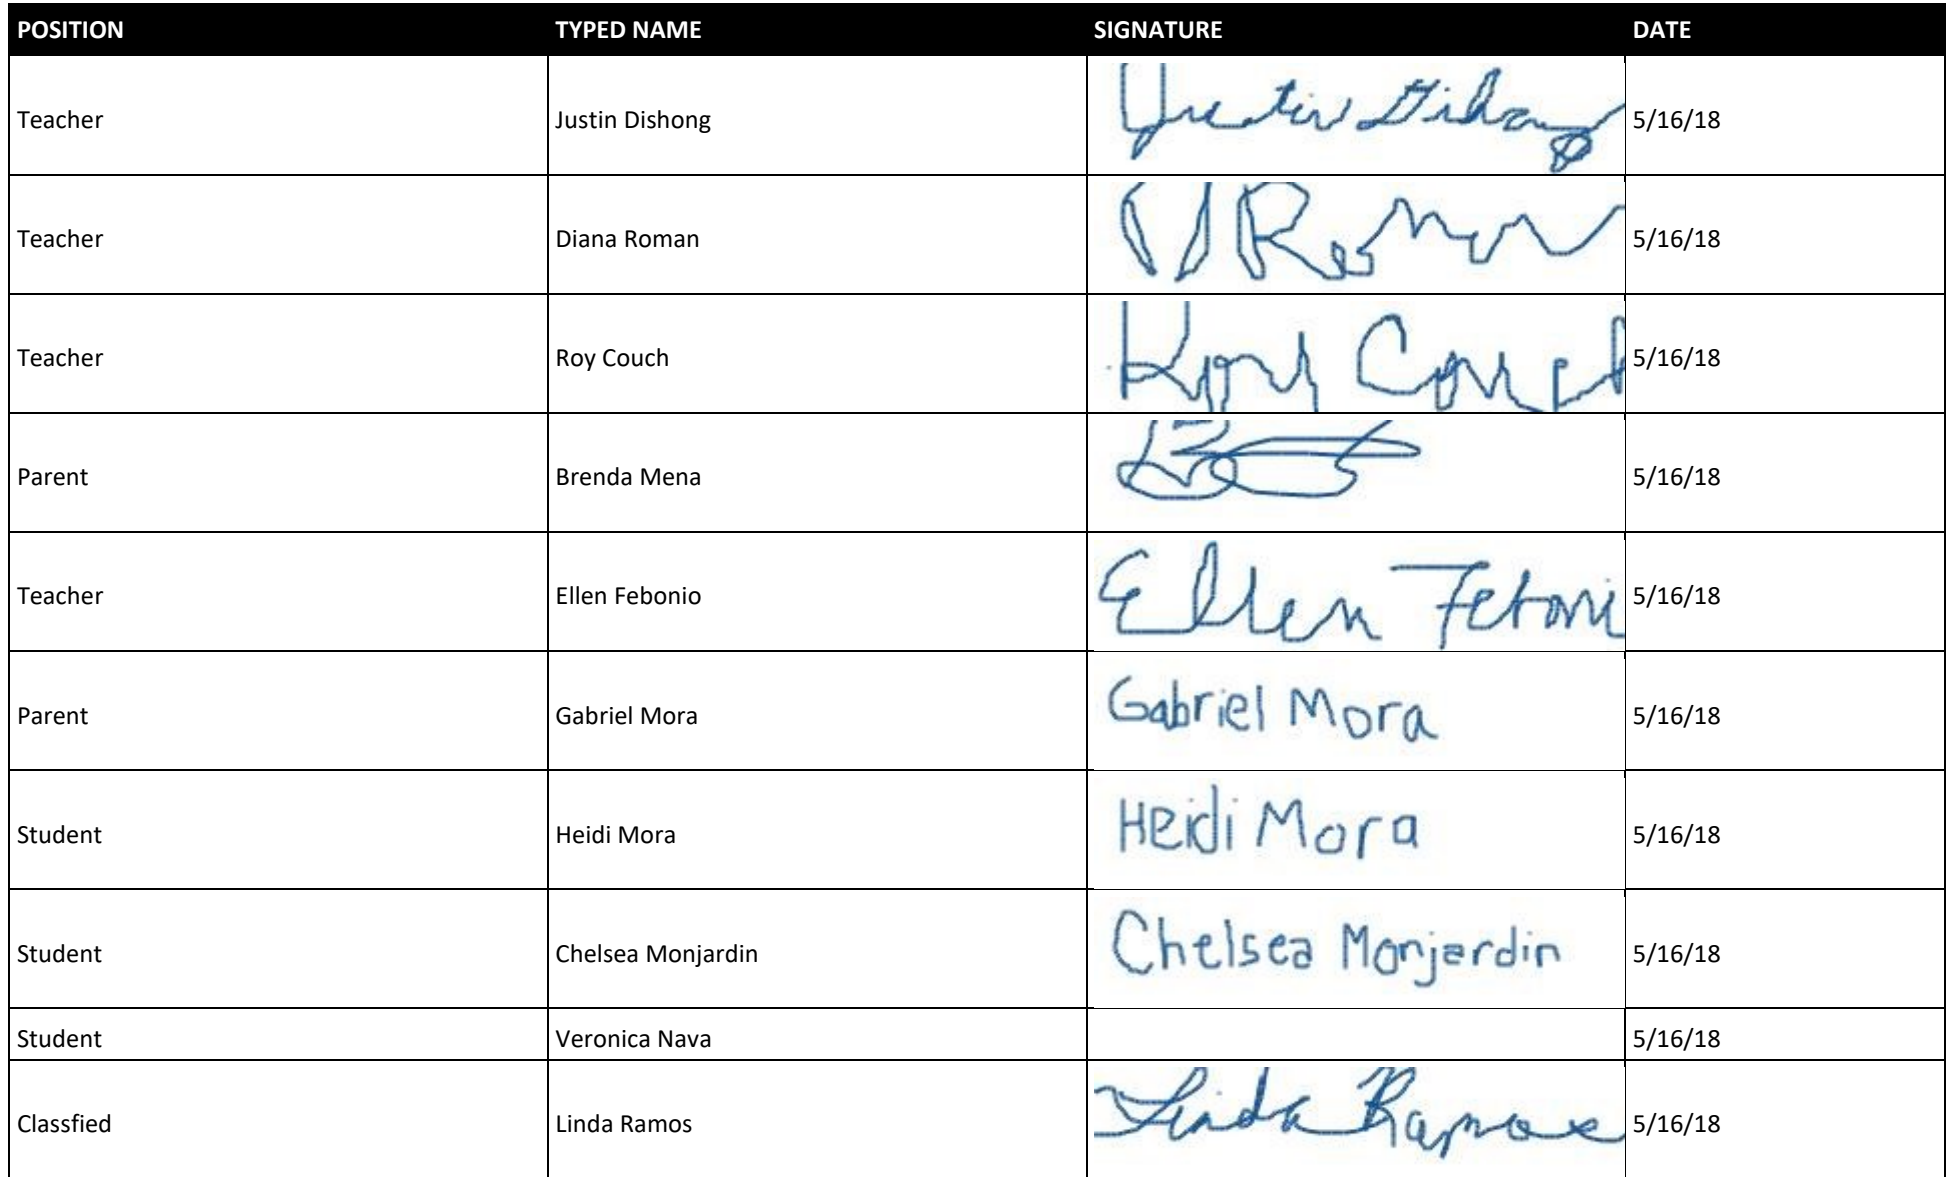 POSITION TYPED NAME SIGNATURE DATE
Teacher Justin Dishong Justin Dishong 5/16/18
Teacher Diana Roman D Roman 5/16/18
Teacher Roy Couch Roy Couch 5/16/18
Parent Brenda Mena 5/16/18
Teacher Ellen Febonio Ellen Feboni 5/16/18
Parent Gabriel Mora Gabriel Mora 5/16/18
Student Heidi Mora Heidi Mora 5/16/18
Student Chelsea Monjardin Chelsea Monjardin 5/16/18
Student Veronica Nava 5/16/18
Classfied Linda Ramos Linda Ramos 5/16/18